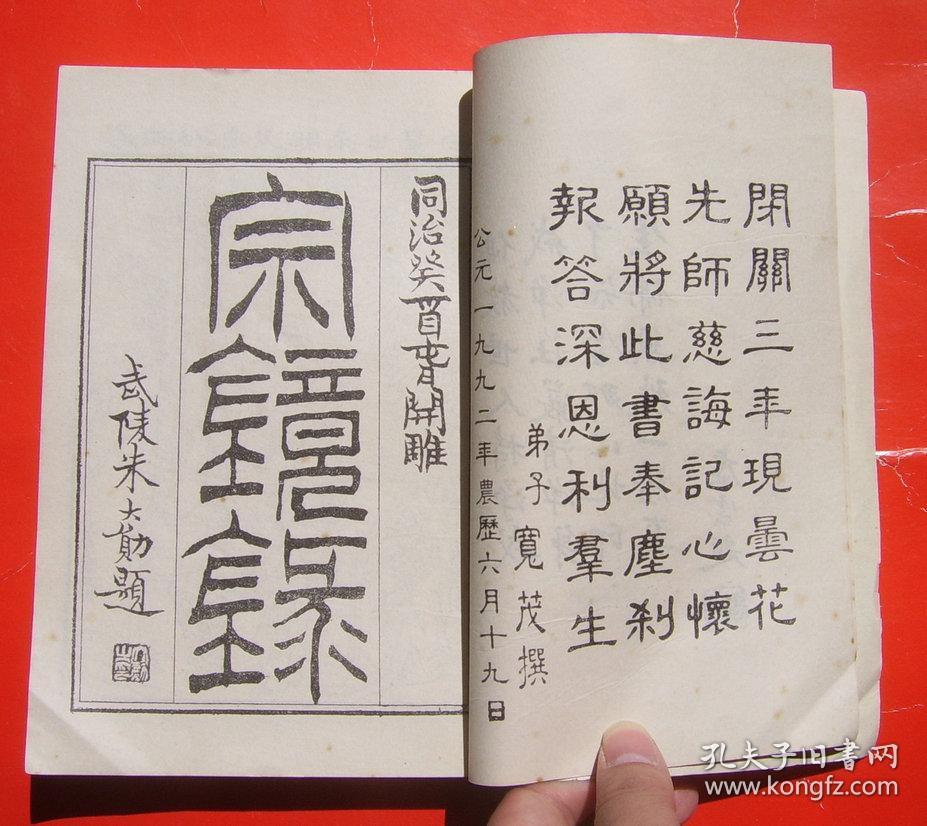 閉關三年現曇花
先師慈誨記心懷
願將此書奉塵刹
報答深恩利羣生
弟子寬茂撰
公元一九九二年農歷六月十九日
開雕
宗鏡錄
武陵朱大勛題
孔夫子旧书网
www.kongfz.com